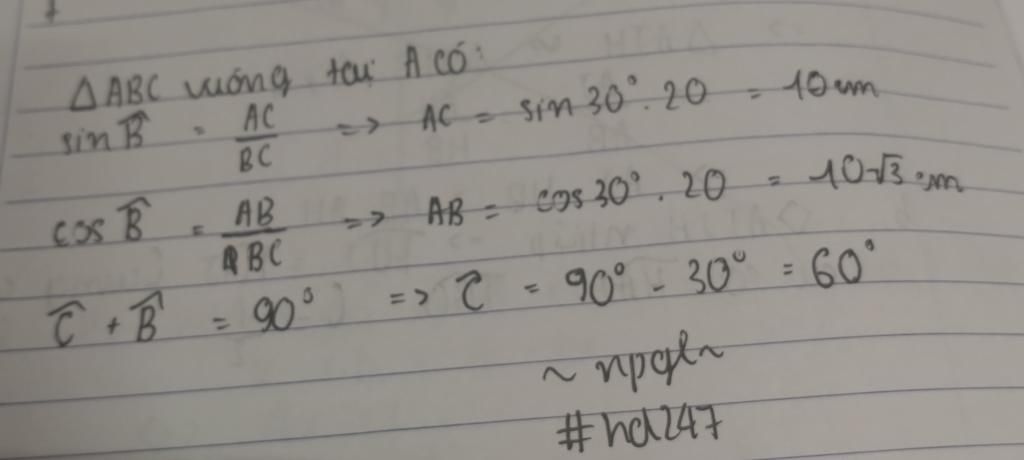 △ABC vuông tại A có:
sin B̂ = AC/BC => AC = sin 30° . 20 = 10 cm
cos B̂ = AB/BC => AB = cos 30° . 20 = 10√3 cm
Ĉ + B̂ = 90° => Ĉ = 90° - 30° = 60°
~ npgl ~
#hd247